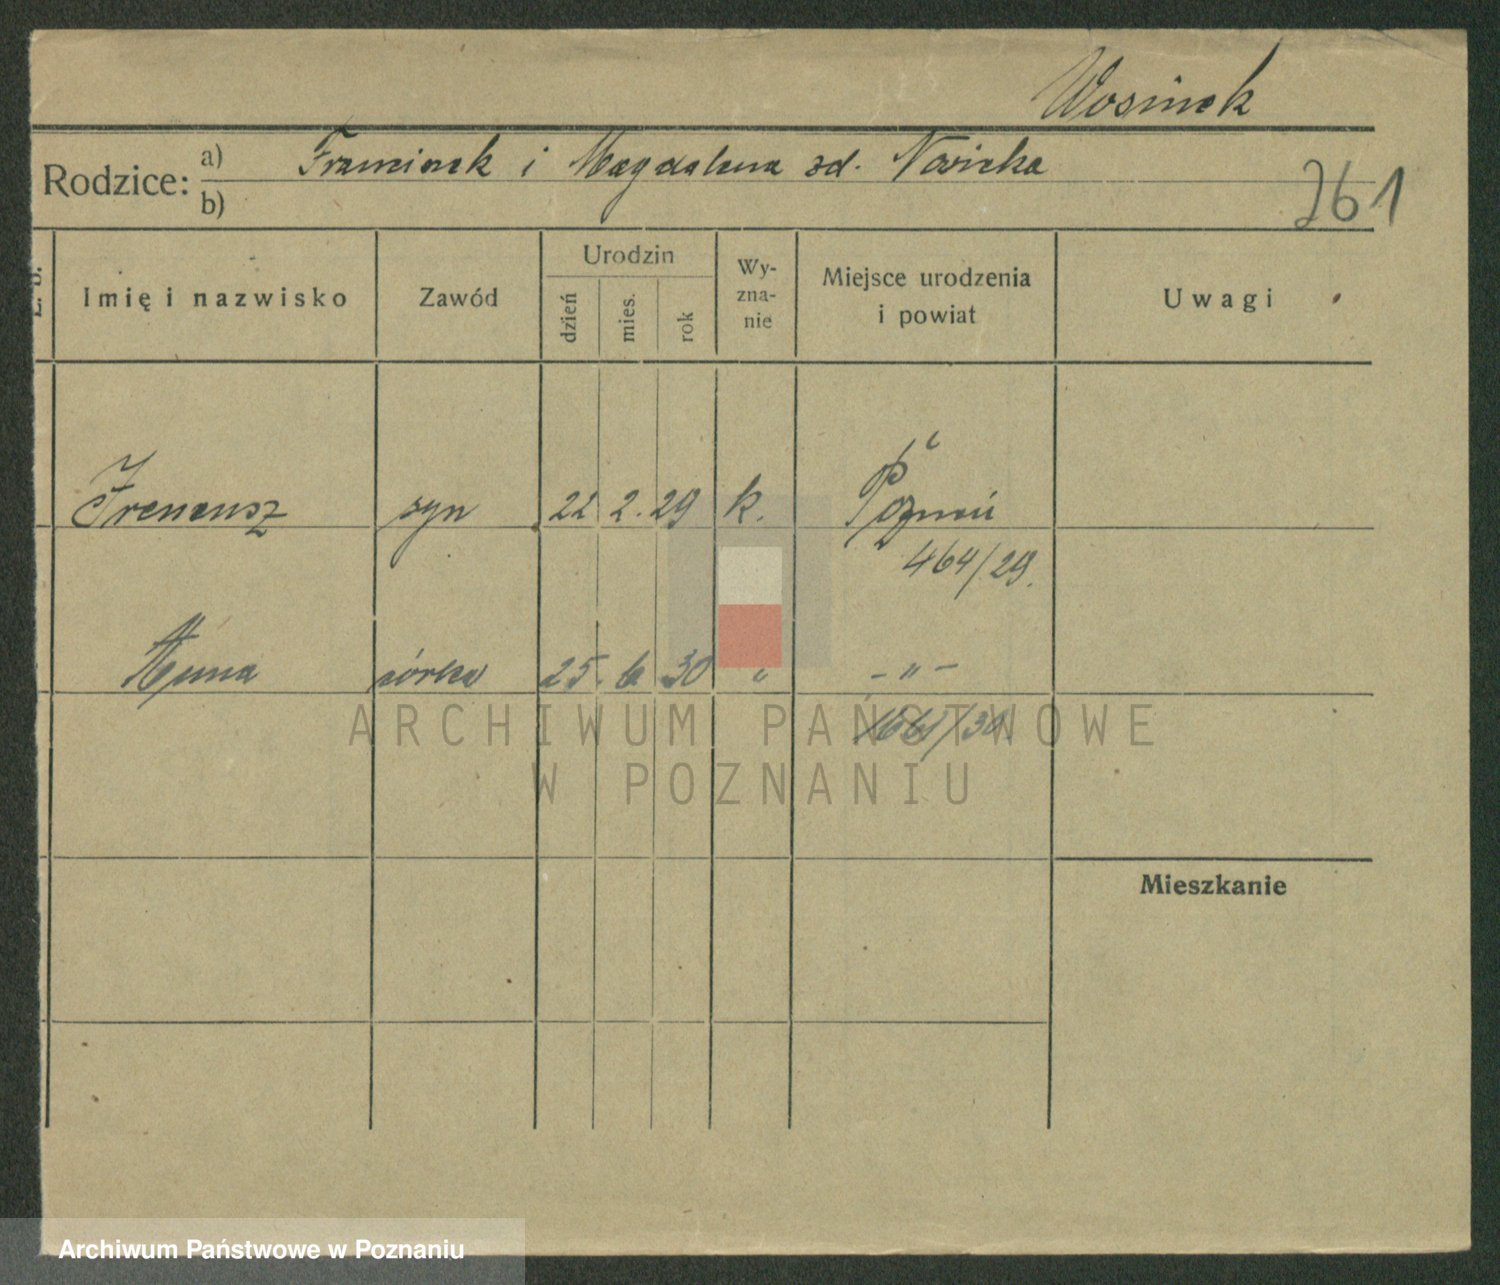 Wosinek
Rodzice: a) Franciszek i Magdalena zd. Nosicka
b)
761
L. b.
Imię i nazwisko
Zawód
Urodzin
dzień
mies.
rok
Wy-
zna-
nie
Miejsce urodzenia
i powiat
Uwagi
Ireneusz syn 22 2. 29 k. Poznań
464/29.
Anna córka 25. 6 30 " - " -
/30.
ARCHIWUM PAŃSTWOWE
W POZNANIU
Mieszkanie
Archiwum Państwowe w Poznaniu